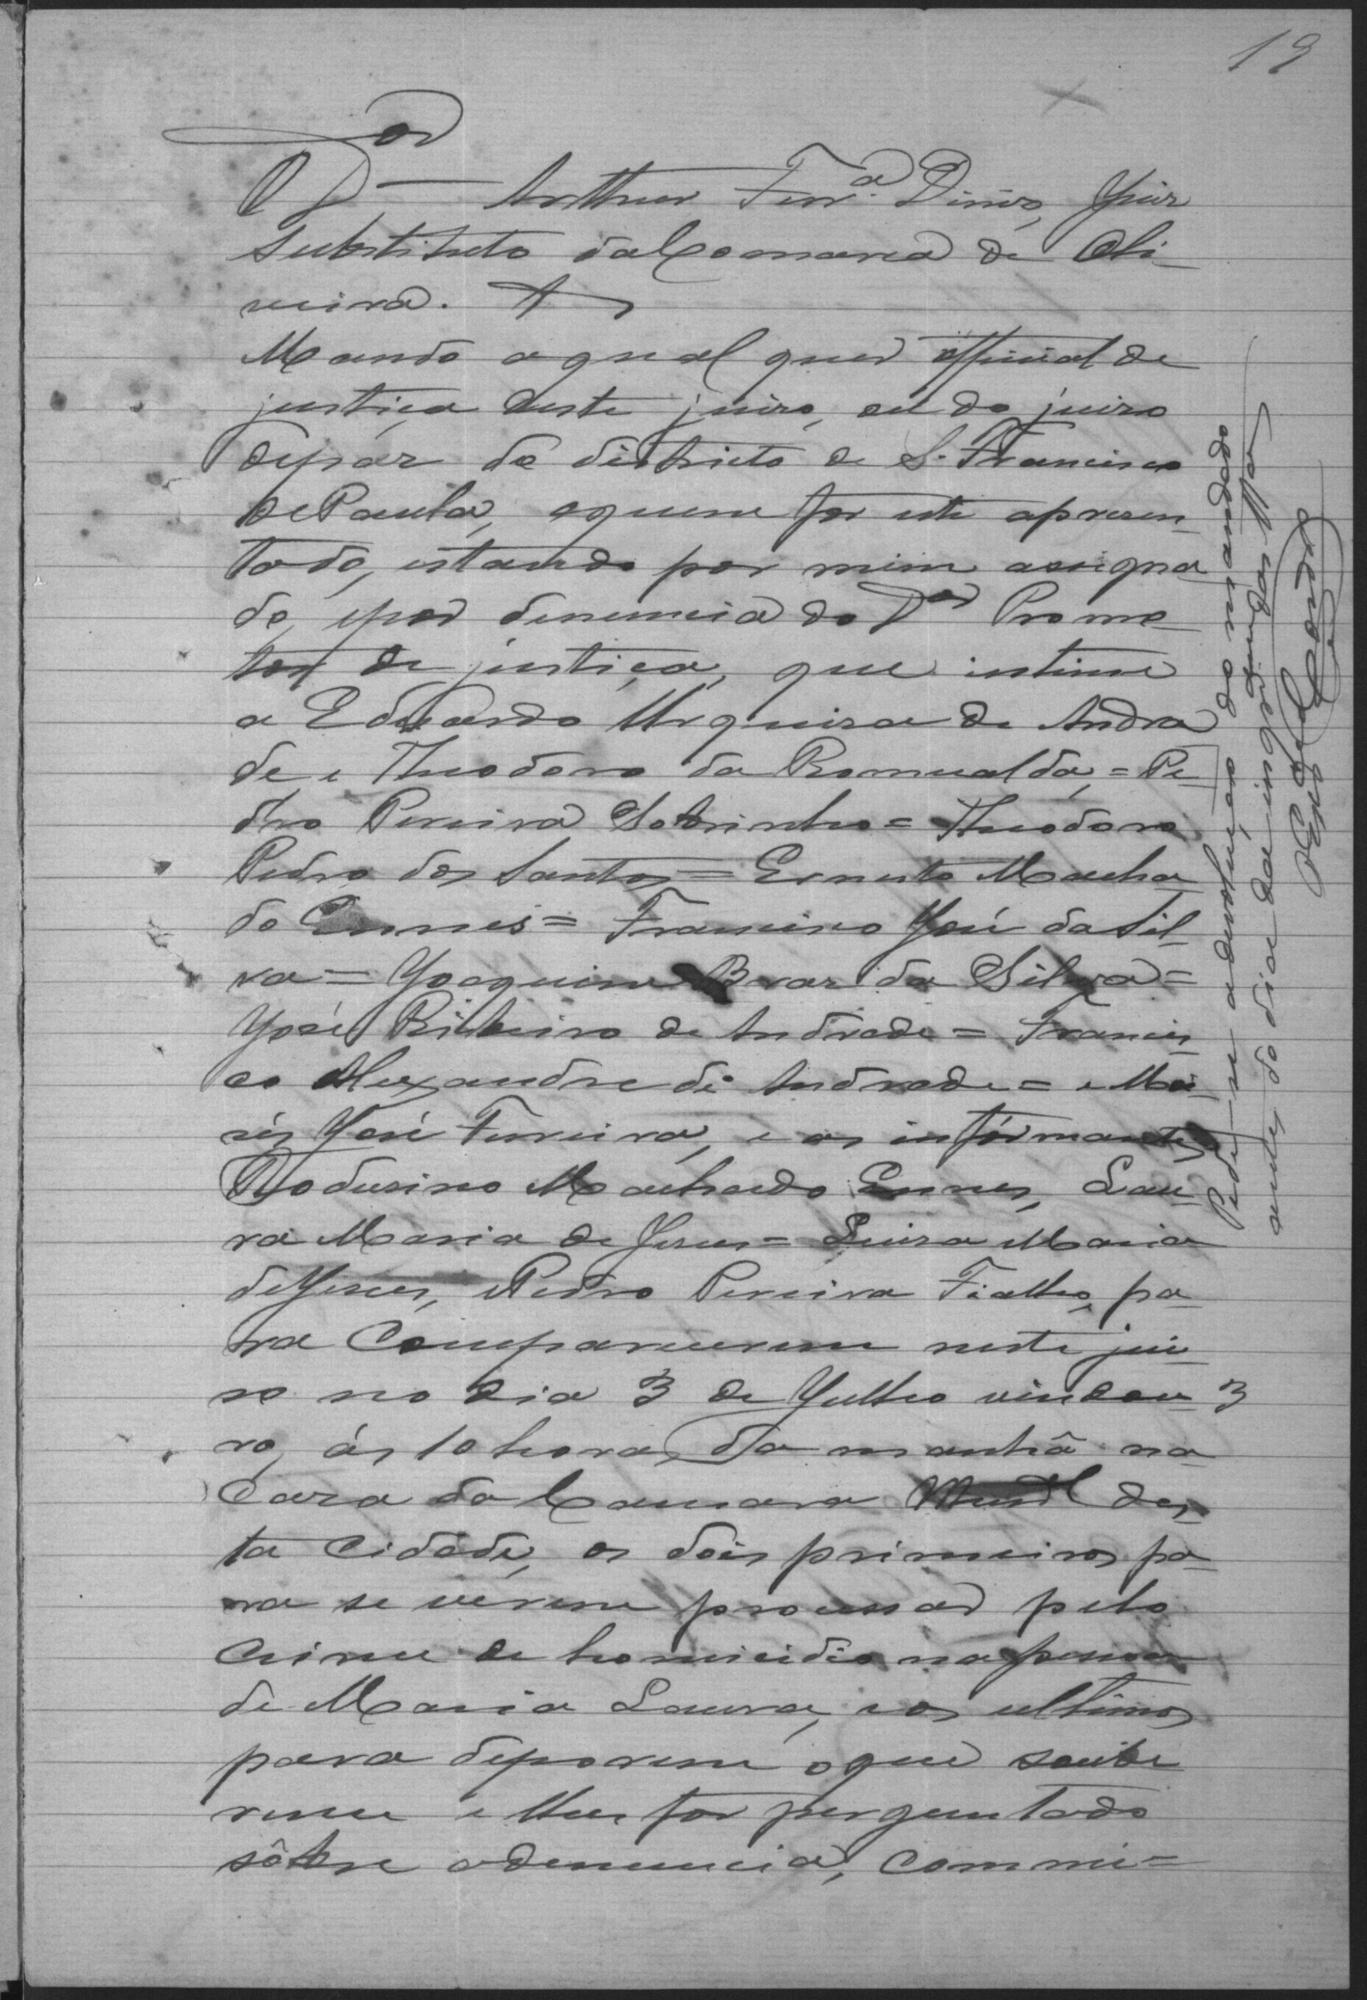 19
O Dor Arthur Ferra Diniz, Juiz
substituto da Comarca de Oli-
veira.
Mando a qual quer official de
justiça deste juizo, ou do juizo
de paz do districto de S. Francisco
de Paula, a quem for este apresen-
tado, estando por mim assigna
do, e por denuncia do Dor Promo-
tor de justiça, que intime
a Eduardo Urquisa de Andra
de e Theodoro da Romualda, = Pe-
dro Pereira Sobrinho = Theodoro
Pedro dos Santos = Ernesto Macha-
do Ennes = Francisco José da Sil-
va = Joaquim Braz da Silva =
José Ribeiro de Andrade = Francis-
co Alexandre de Andrade = e Moi-
sés José Ferreira, e os informantes
Theodosino Machado Ennes, Lau-
ra Maria de Jesus = Luiza Maria
de Jesus, e Pedro Pereira Fialho, pa-
ra comparecerem neste jui-
so no dia 3 de Julho vindou- 3
ro, ás 10 horas da manhã na
Caza da Camara Munal des-
ta cidade, os dois primeiros pa-
ra se verem processar pelo
crime de homicidio na pessoa
de Maria Laura, e os ultimos
para deporem o que soube-
rem e lhes for perguntado
sôbre a denuncia, commi=
Pede-se a devolução do mandado
antes do dia da inqm das ttas